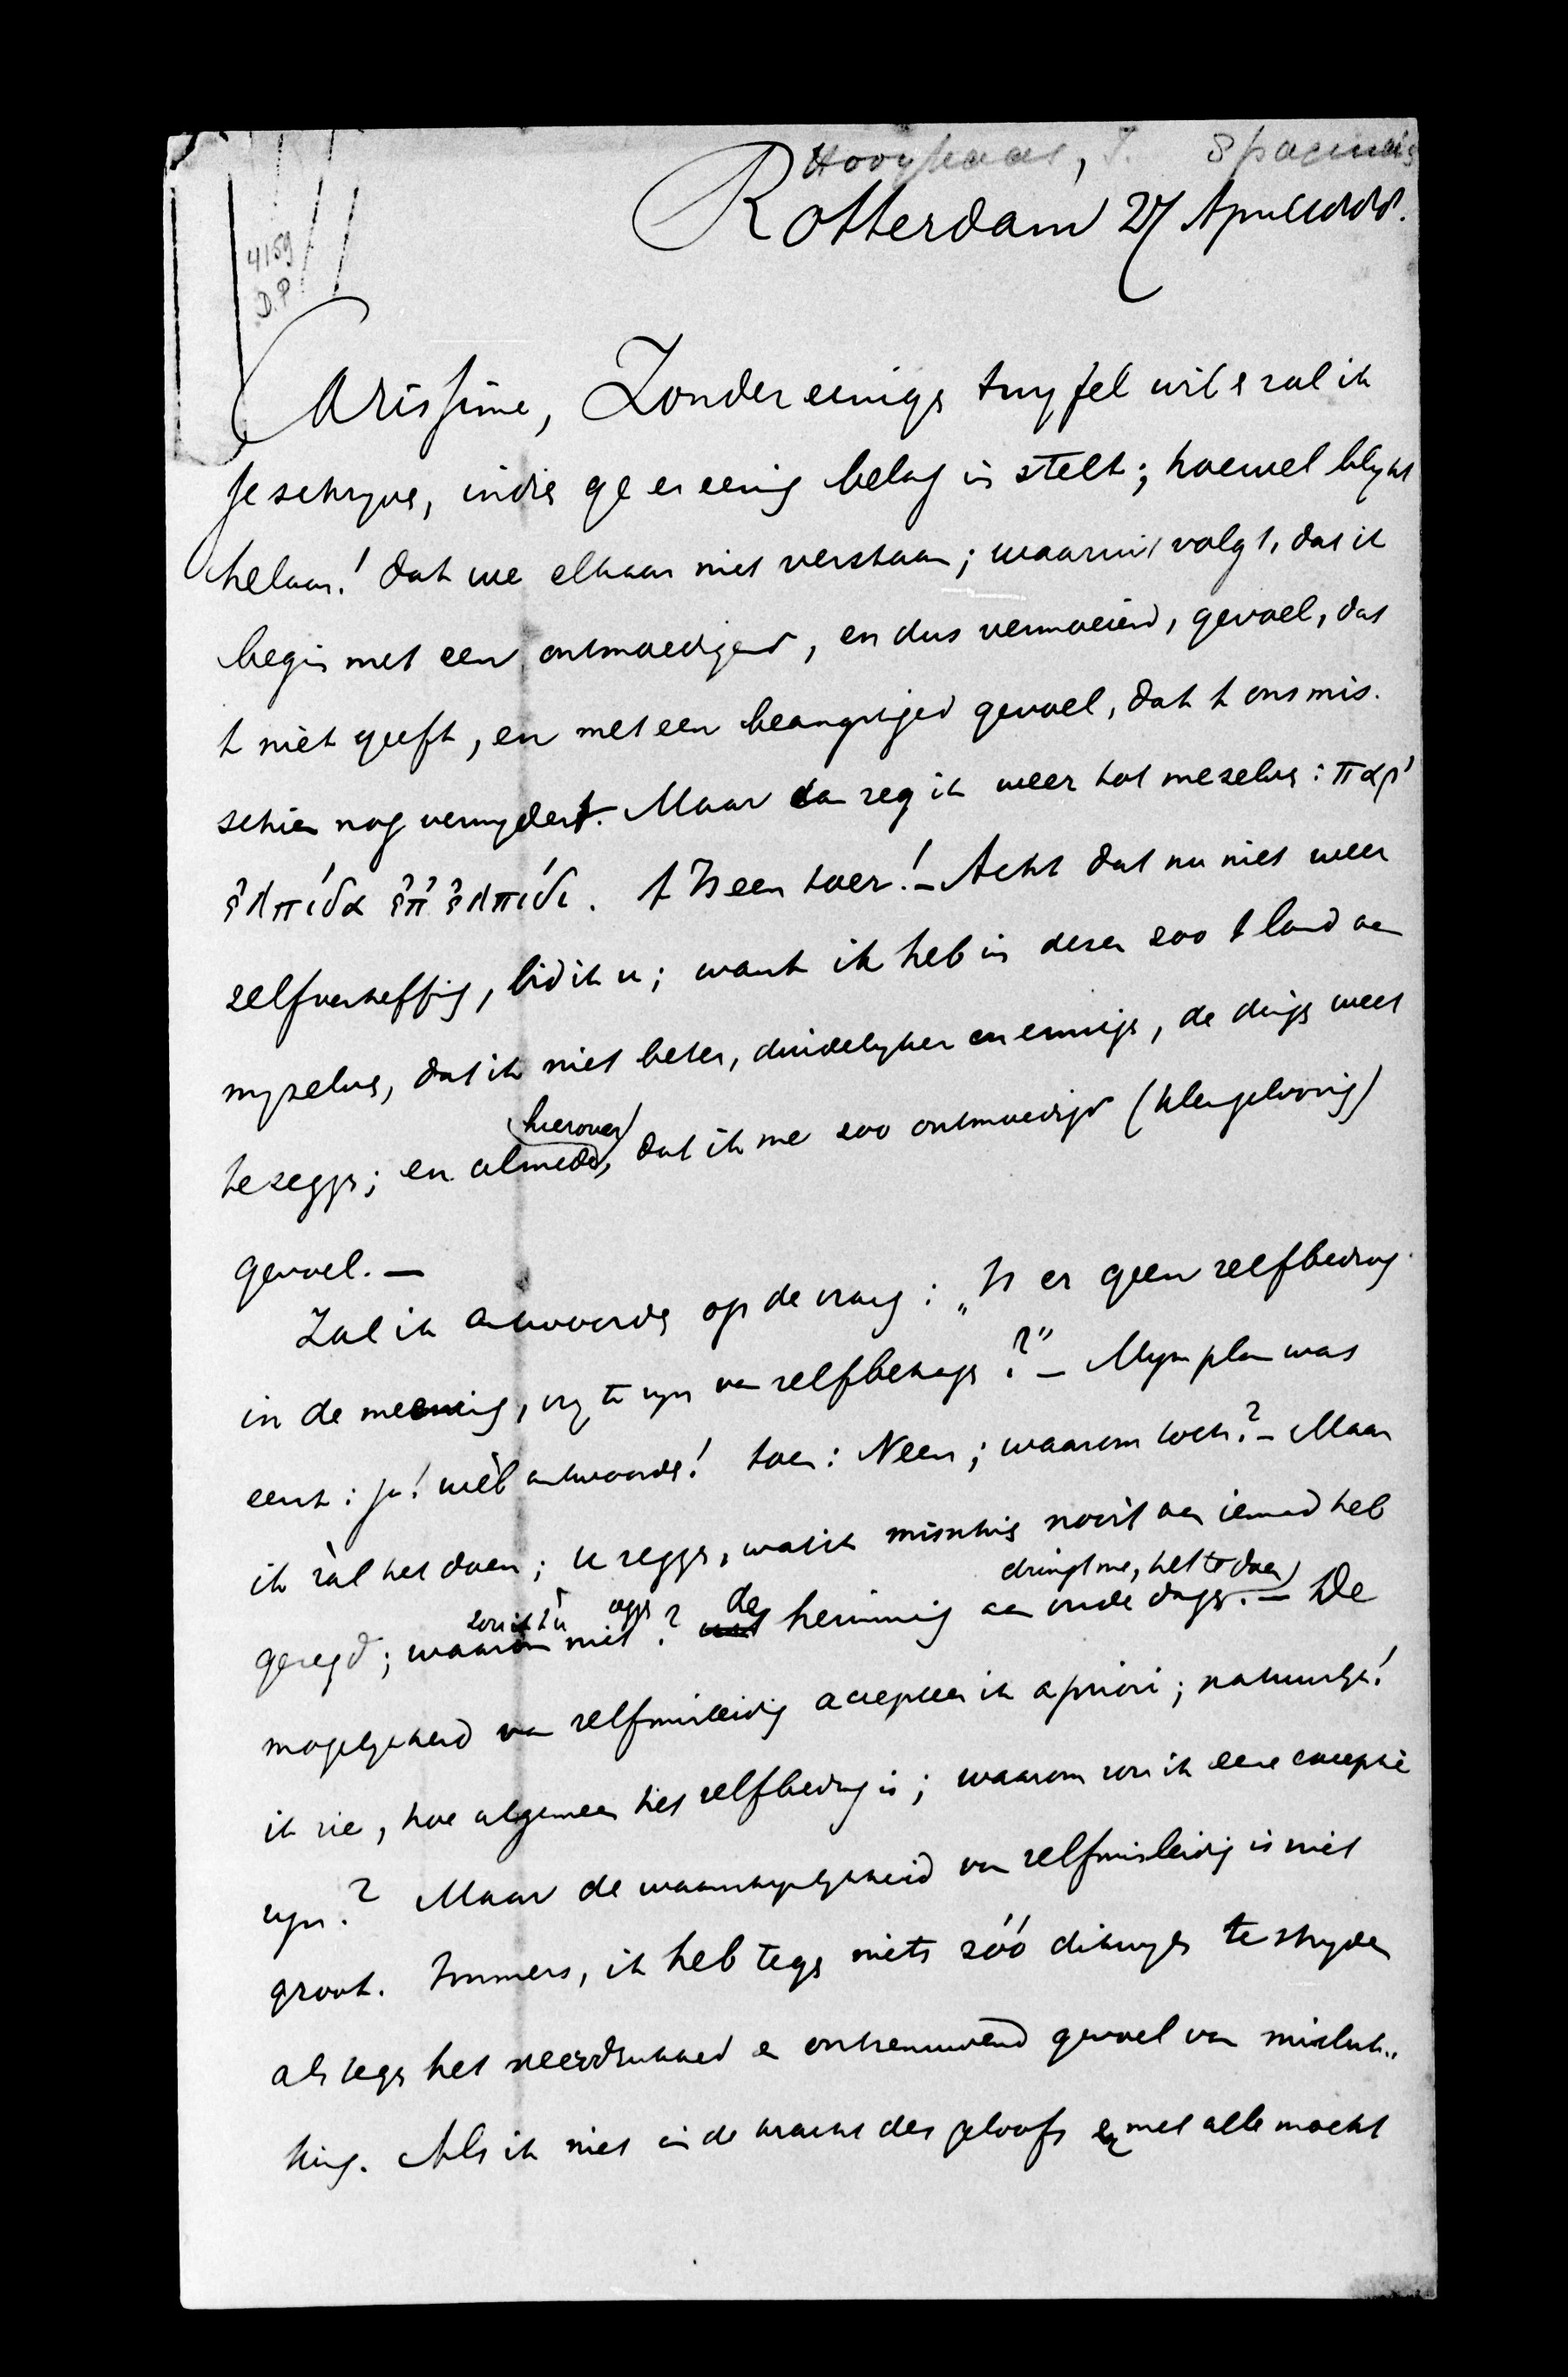 Hooykaas, J. 8 pagina's
Rotterdam 27 April 1888.
4159
D.P.
Carissime, Zonder eenige twyfel wil & zal ik
je schryve, indie ge er eenig belag in stelt; hoewel blykt
helaas! dat we elkaar niet verstaan; waaruit volgt, dat ik
begin met een ontmoedigend, en dus vermoeiend, gevoel, dat
't niét geeft, en met een beangstiged gevoel, dat 't ons mis-
schien nog verwydert. Maar dan zeg ik weer tot mezelve: παρ'
ἐλπίδα ἐπ' ἐλπίδι. 't Is een toer! – Acht dat nu niet weer
zelfverheffig, bid ik u; want ik heb in deze zoo 't land aan
myzelve, dat ik niet beter, duidelyker en ennige, de dinge weet
te zegge; en almede, (hierover) dat ik me zoo ontmoedigd (kleingeloovig)
gevoel. —
Zal ik antwoorde op de vraag: „Is er geen zelfbedrog
in de meening, vry te zyn van zelfbehage?" – Myn plan was
eerst: ja! wèl antwoorde! toen: Neen; waarom toch? – Maar
ik zàl het doen; te zegge, wat ik misschie nooit aan iemand heb
gezegd; waarom zou ik 't ù niet zegge? de herinnerig aan oude dage dringt me, het te doen. — De
mogelykheid van zelfmisleidig accepteer ik a priori; natuurlyk!
ik zie, hoe algemeen het zelfbedrog is; waarom zou ik eene exceptie
zyn? Maar de waarschynlykheid van zelfmisleidig is niet
groot. Immers, ik heb tege niets zóó dikwyls te stryden
als tege het neerdrukked en ontzenuwend gevoel van misluk-
king. Als ik niet in de kracht des geloofs en met alle macht